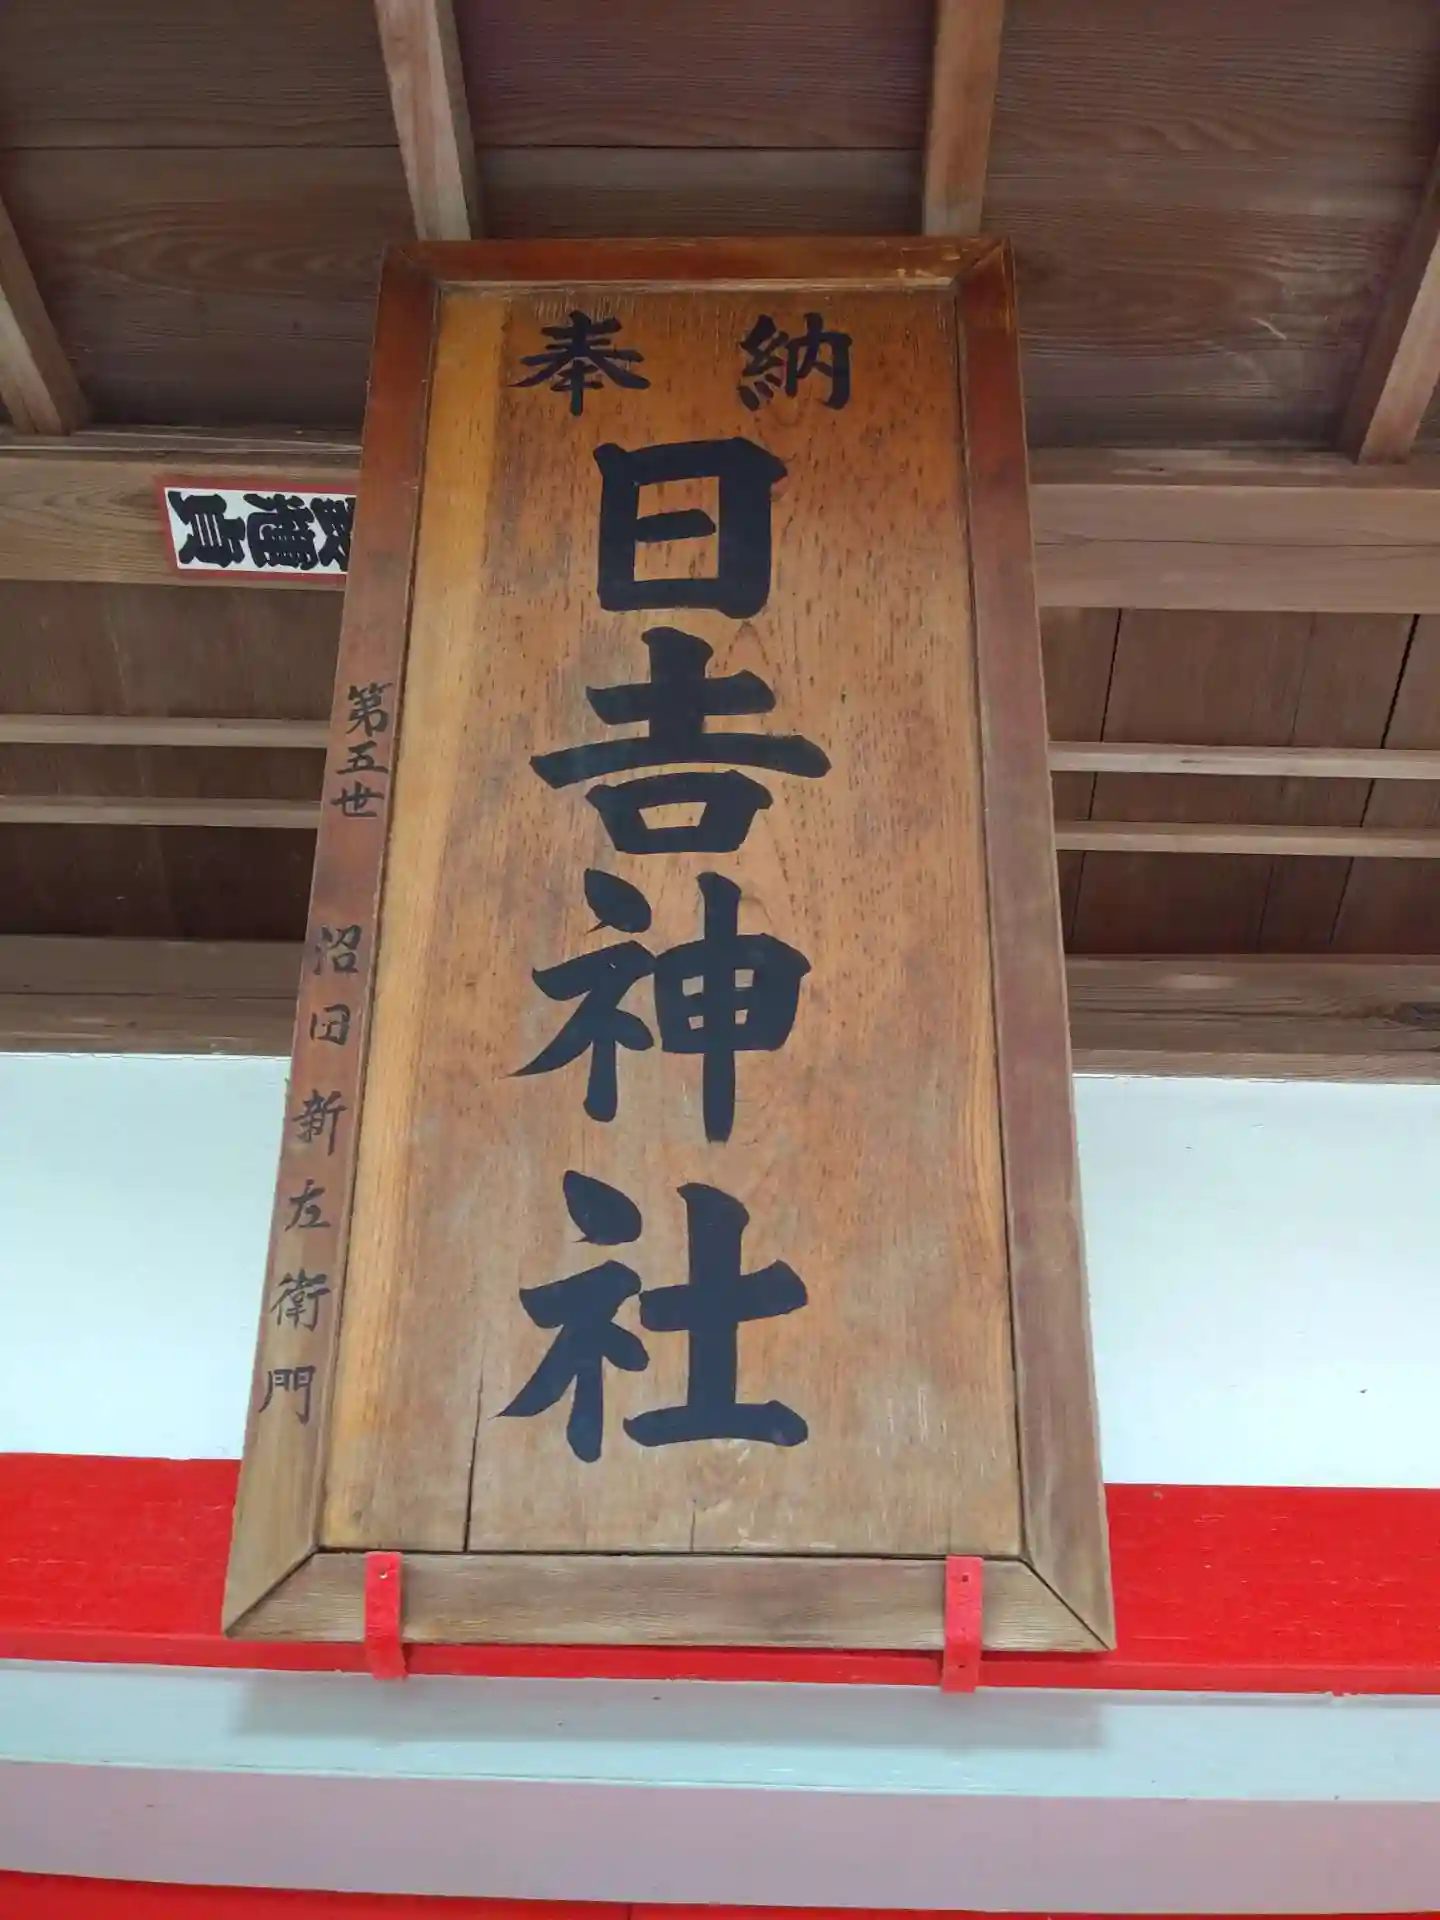 奉納
日吉神社
第五世 沼田新左衛門